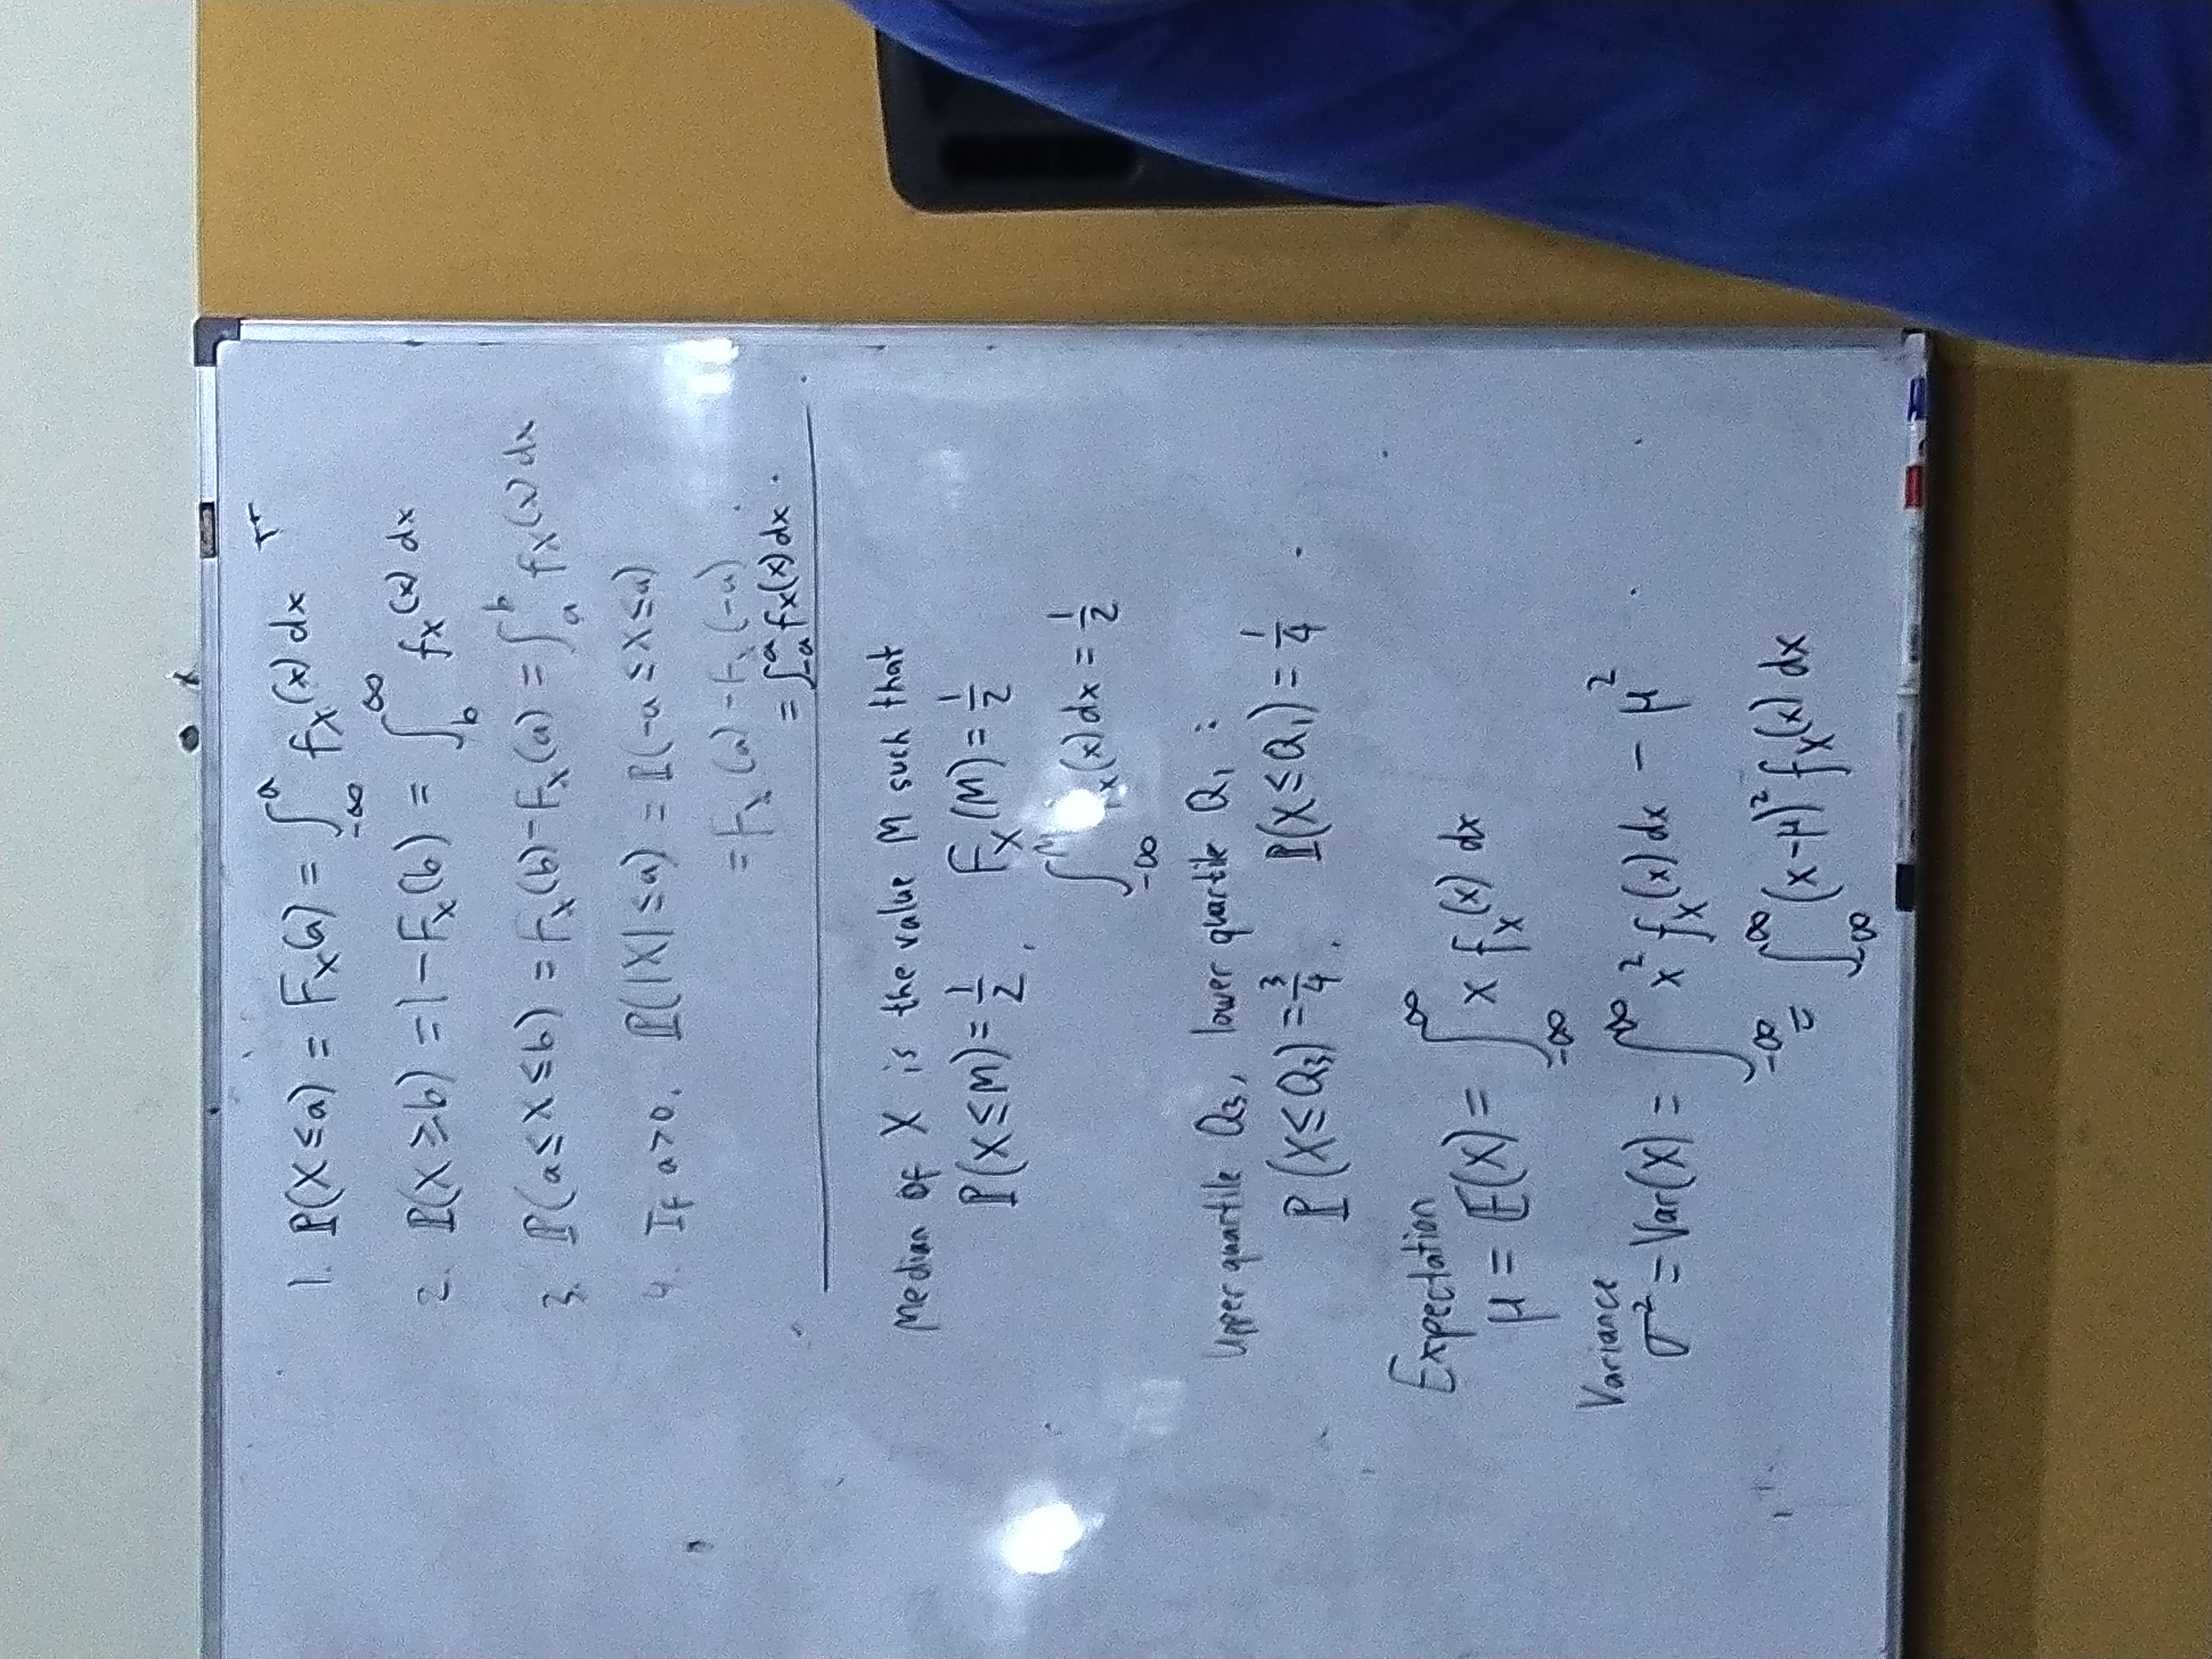 1. ℙ(X ≤ a) = F_X(a) = ∫_{-∞}^{a} f_X(x) dx
2. ℙ(X ≥ b) = 1 - F_X(b) = ∫_{b}^{∞} f_X(x) dx
3. ℙ(a ≤ X ≤ b) = F_X(b) - F_X(a) = ∫_{a}^{b} f_X(x) dx
4. If a > 0, ℙ(|X| ≤ a) = ℙ(-a ≤ X ≤ a)
= F_X(a) - F_X(-a)
= ∫_{-a}^{a} f_X(x) dx.
Median of X is the value M such that
ℙ(X ≤ M) = 1/2, F_X(M) = 1/2
∫_{-∞}^{M} f_X(x) dx = 1/2
Upper quartile Q₃, lower quartile Q₁ :
ℙ(X ≤ Q₃) = 3/4, ℙ(X ≤ Q₁) = 1/4.
Expectation
μ = 𝔼(X) = ∫_{-∞}^{∞} x f_X(x) dx
Variance
σ² = Var(X) = ∫_{-∞}^{∞} x² f_X(x) dx - μ²
= ∫_{-∞}^{∞} (x-μ)² f_X(x) dx